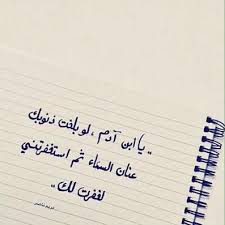 .. يا ابن آدم ، لو بلغت ذنوبك
عنان السماء ثم استغفرتني
لغفرت لك ..